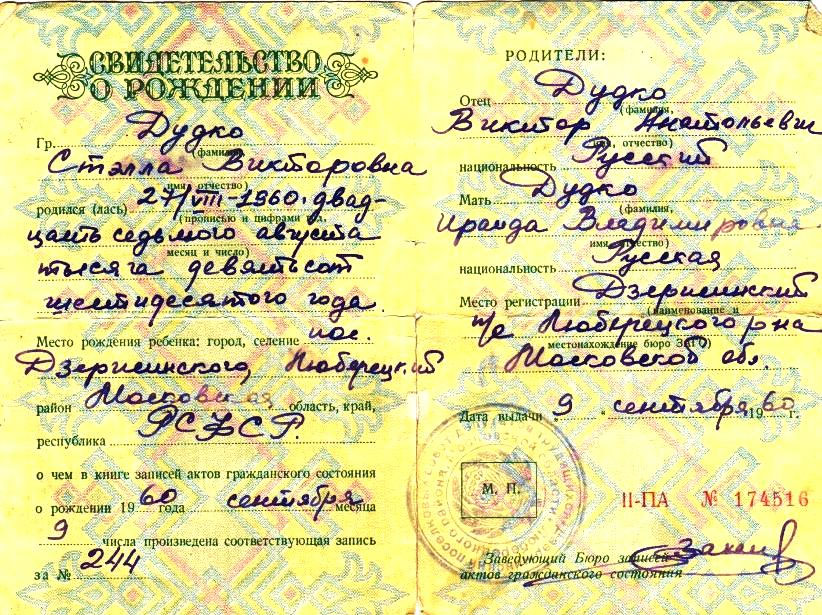 СВИДЕТЕЛЬСТВО
О РОЖДЕНИИ
Гр. Дудко
(фамилия,
Стэлла Викторовна
имя, отчество)
родился (лась) 27/VIII-1960. двад-
(прописью и цифрами год,
цать седьмого августа
месяц и число)
тысяча девятьсот
шестидесятого года
Место рождения ребенка: город, селение пос.
Дзержинского, Люберецкий
район Московская область, край,
республика РСФСР.
о чем в книге записей актов гражданского состояния
о рождении 1960 года сентября месяца
9 числа произведена соответствующая запись
за № 244
РОДИТЕЛИ:
Отец Дудко
(фамилия,
Виктор Анатольевич
имя, отчество)
национальность Русский
Мать Дудко
(фамилия,
Ираида Владимировна
имя, отчество)
национальность Русская
Место регистрации Дзержинский
(наименование и
п/с Люберецкого р-на
местонахождение бюро ЗАГС)
Московской обл.
Дата выдачи „9 сентября 1960 г.
М. П.
II-ПА № 174516
Заведующий Бюро записей
актов гражданского состояния